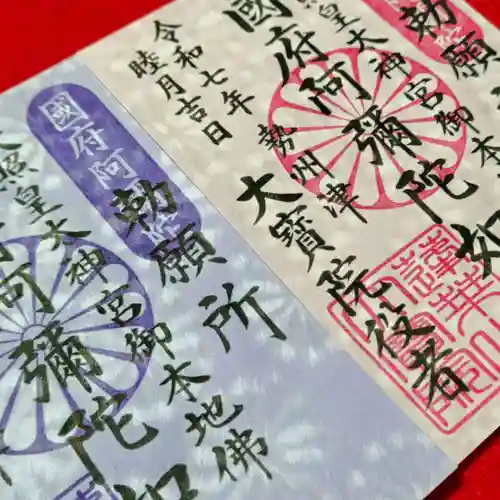 勅願
照皇大神宮御本
國府阿彌陀如
勢州津
大寶院役者
令和七年
睦月吉日
國府阿
勅願所
照皇大神宮御本地佛
阿彌陀如